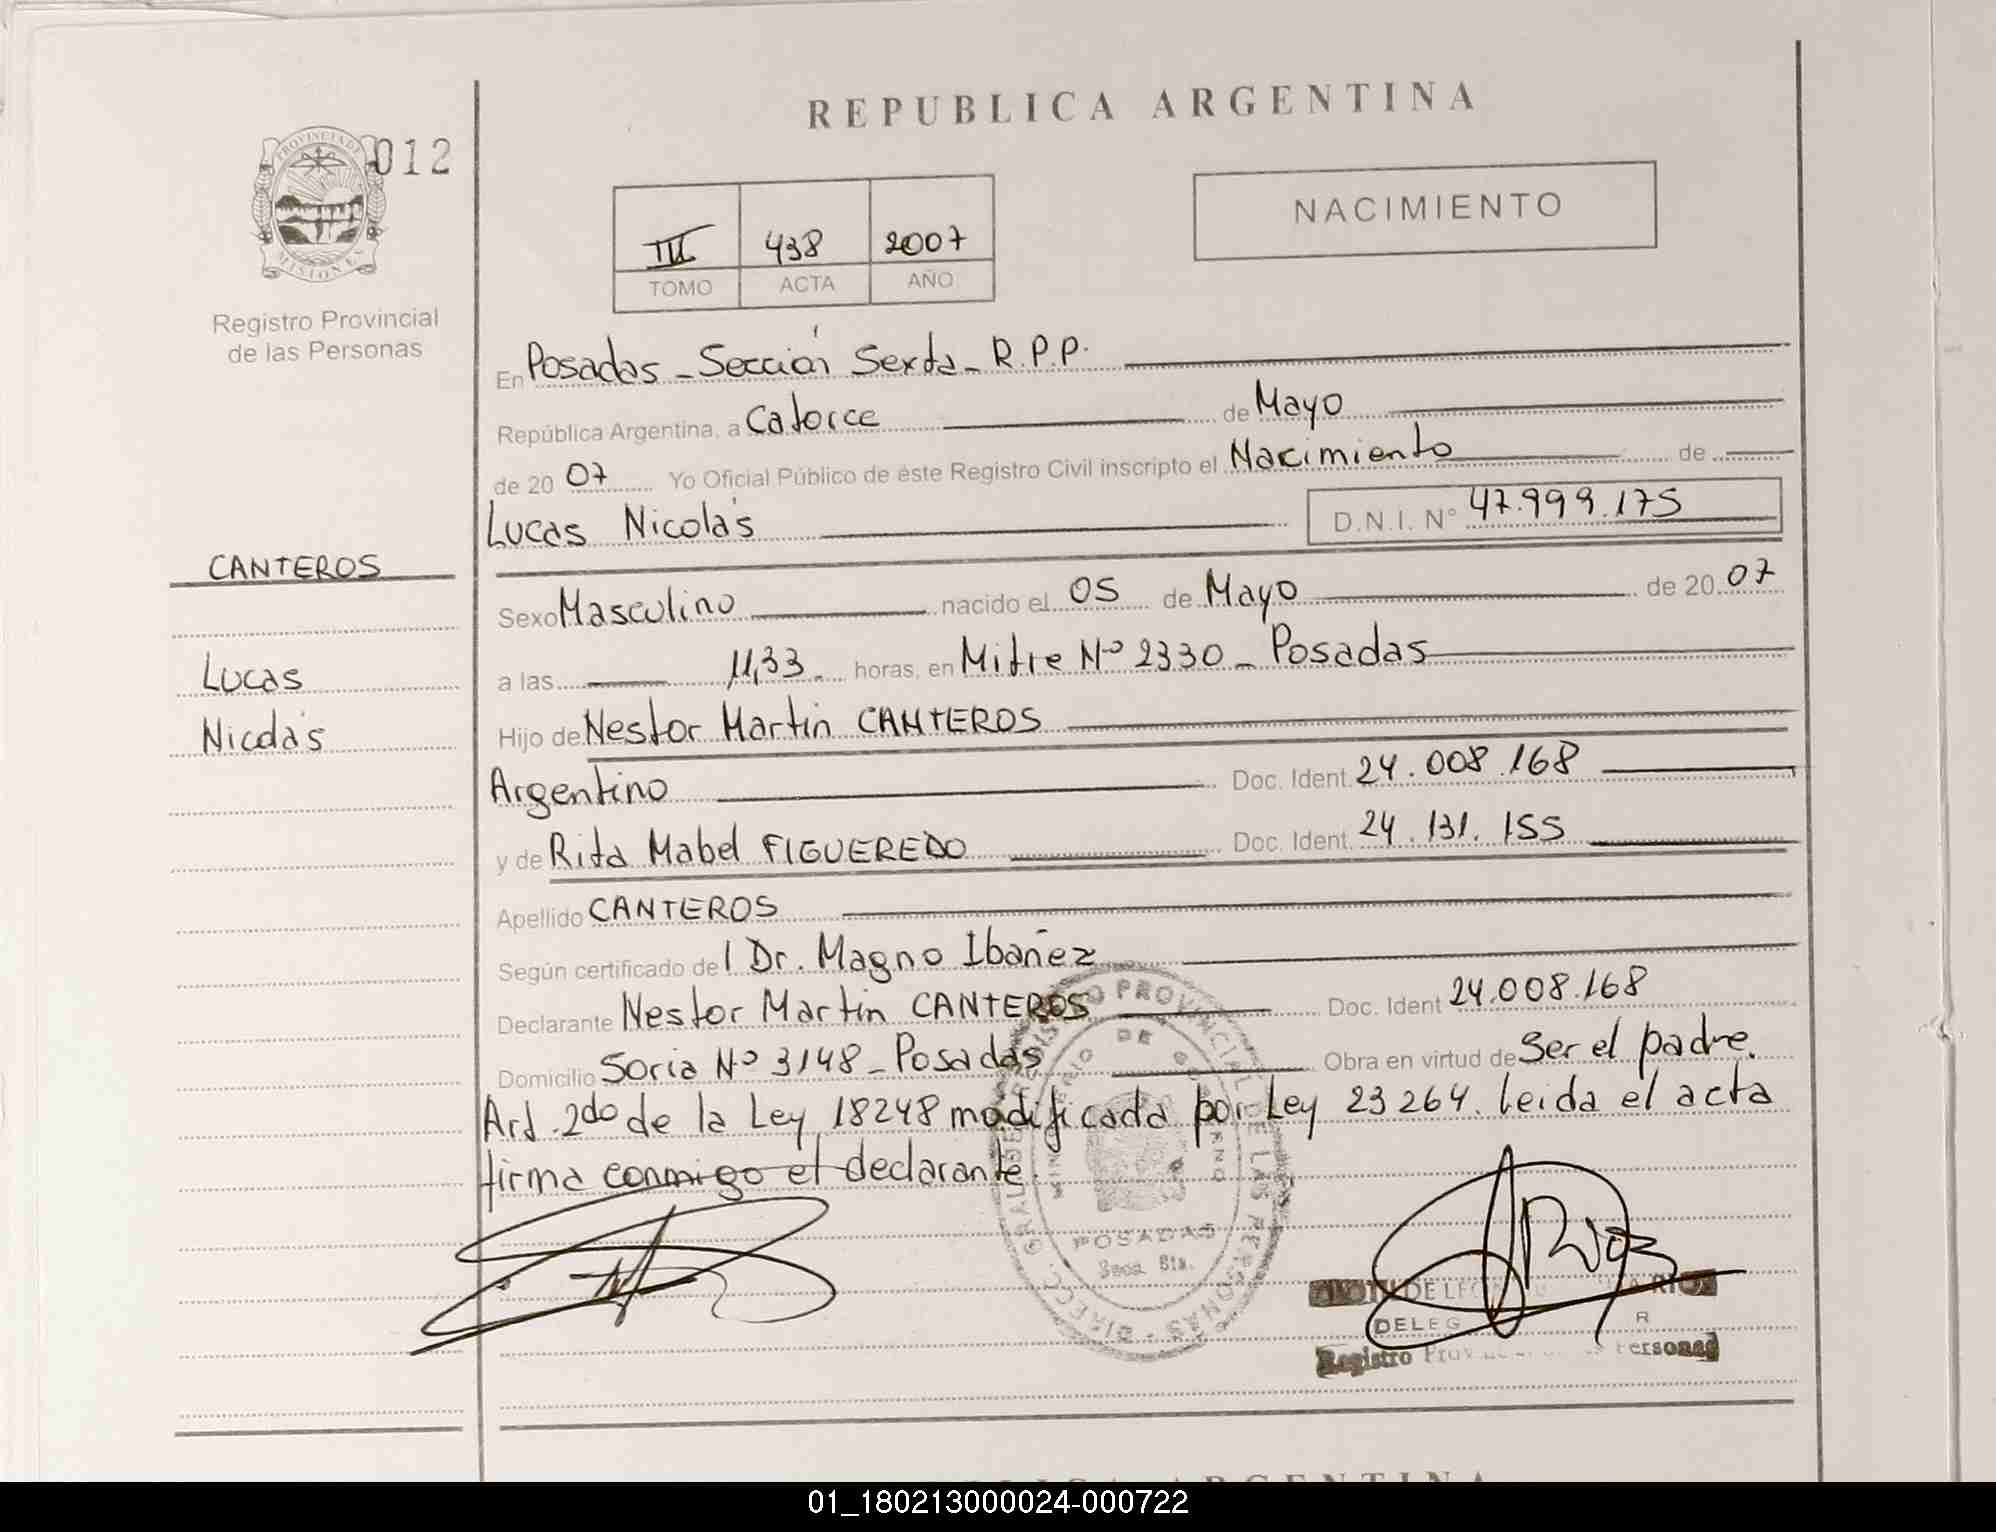 REPUBLICA ARGENTINA
PROVINCIA DE
MISIONES
012
NACIMIENTO
III 438 2007
TOMO ACTA AÑO
Registro Provincial
de las Personas
En Posadas - Sección Sexta - R.P.P.
República Argentina, a Catorce de Mayo
de 20 07 Yo Oficial Público de éste Registro Civil inscripto el Nacimiento de
Lucas Nicolás D.N.I. Nº 47.999.175
CANTEROS
Sexo Masculino nacido el 05 de Mayo de 20 07
Lucas
a las 11,33 horas, en Mitre Nº 2330 - Posadas
Nicolás
Hijo de Nestor Martín CANTEROS
Argentino Doc. Ident. 24.008.168
y de Rita Mabel FIGUEREDO Doc. Ident. 24.131.155
Apellido CANTEROS
Según certificado del Dr. Magno Ibañez
Declarante Nestor Martín CANTEROS Doc. Ident 24.008.168
Domicilio Soria Nº 3148 - Posadas Obra en virtud de Ser el padre.
Art. 2do de la Ley 18248 modificada por Ley 23264. leida el acta
firma conmigo el declarante.
DIRECC. GRAL. DE REGISTRO PROVINCIAL DE LAS PERSONAS
MINISTERIO DE GOBIERNO
POSADAS
Secc. 6ta.
Registro Personas
REPUBLICA ARGENTINA
01_180213000024-000722